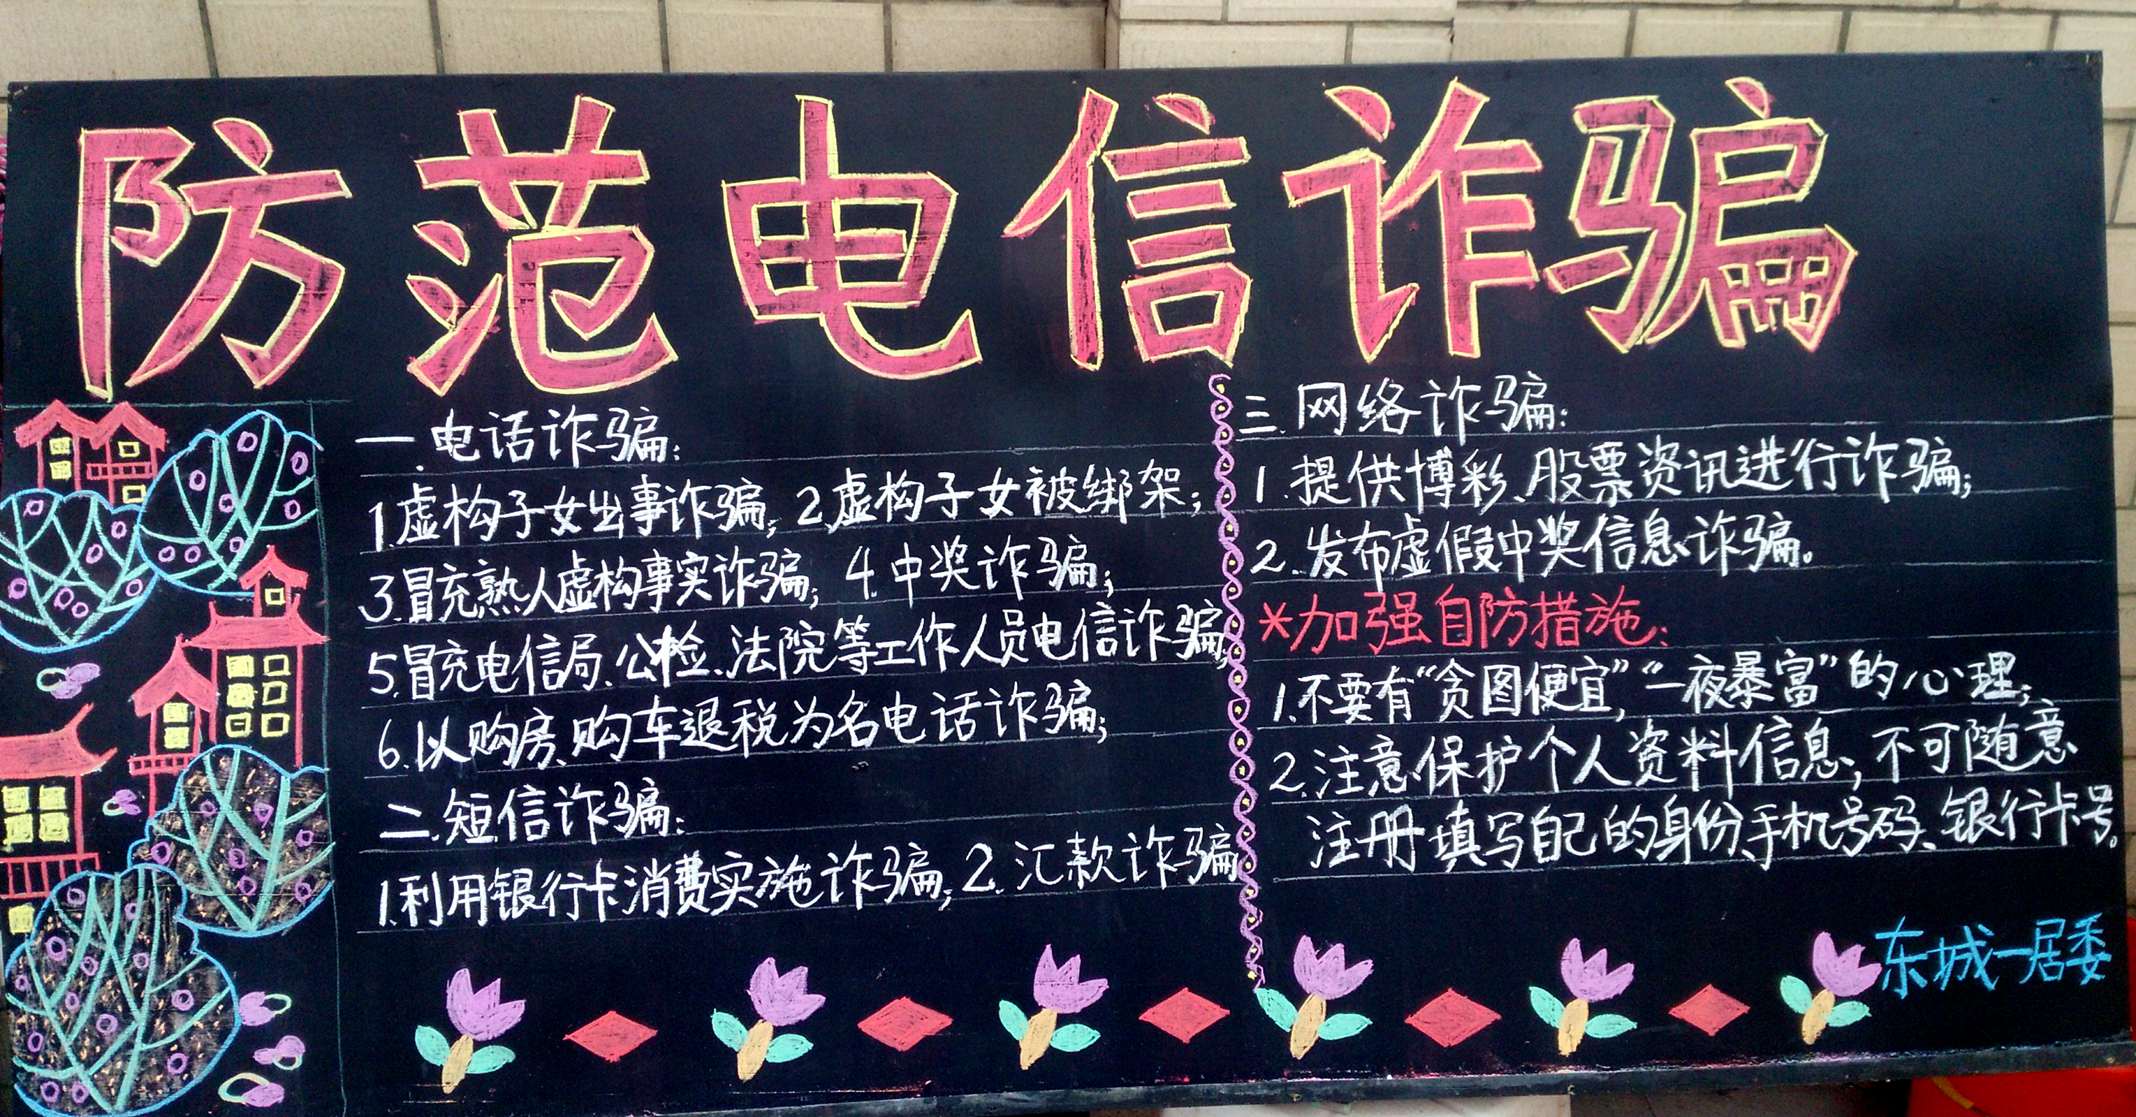 防范电信诈骗
一.电话诈骗:
1.虚构子女出事诈骗;2.虚构子女被绑架;
3.冒充熟人虚构事实诈骗; 4.中奖诈骗;
5.冒充电信局、公检、法院等工作人员电信诈骗;
6.以购房、购车退税为名电话诈骗;
二.短信诈骗:
1.利用银行卡消费实施诈骗;2.汇款诈骗
三.网络诈骗:
1.提供博彩、股票资讯进行诈骗;
2.发布虚假中奖信息诈骗。
*加强自防措施:
1.不要有“贪图便宜”,“一夜暴富”的心理;
2.注意保护个人资料信息,不可随意
注册填写自己的身份、手机号码、银行卡号。
东城一居委